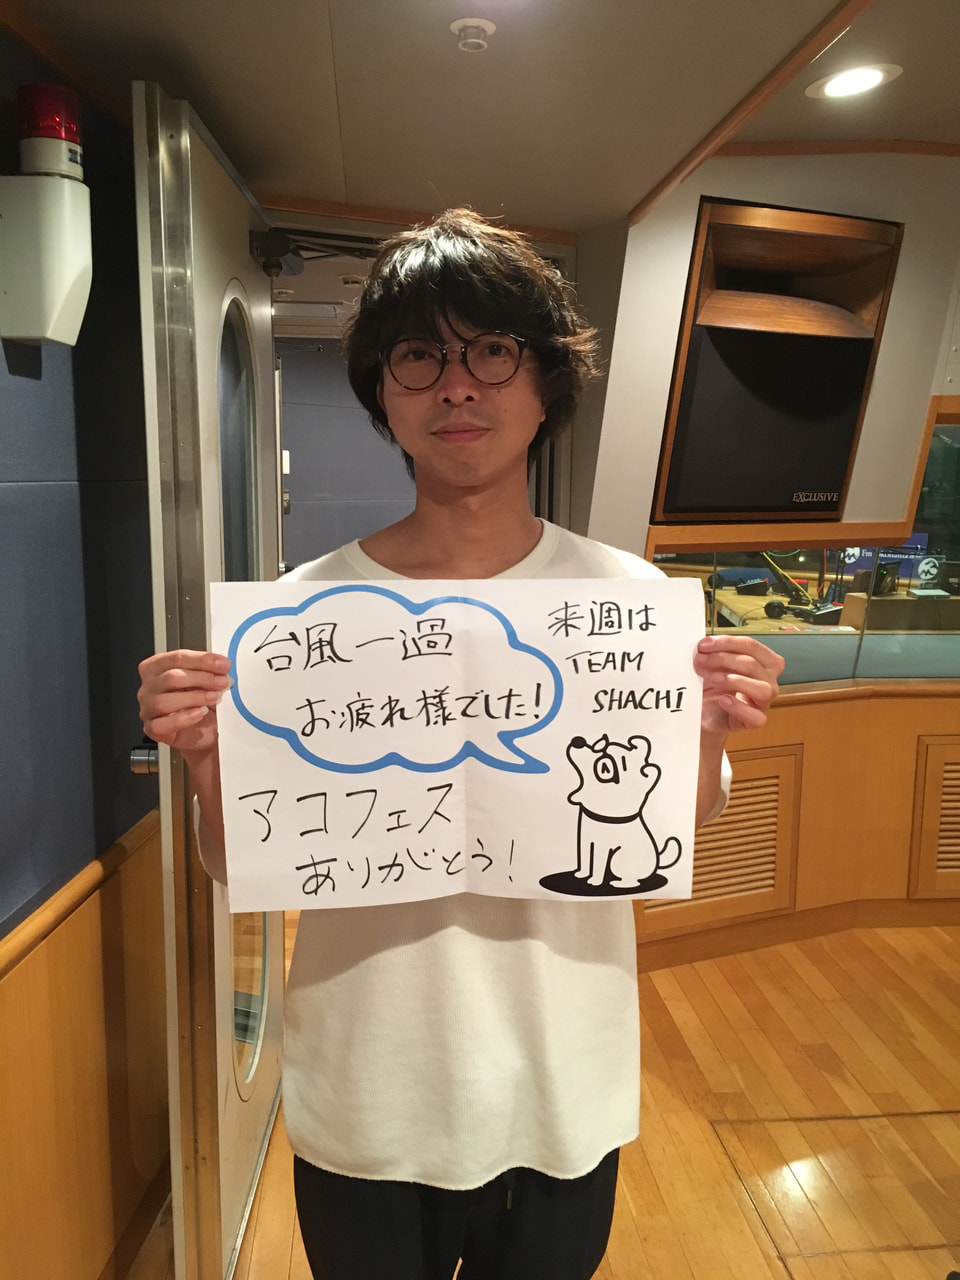 台風一過
お疲れ様でした!
来週は
TEAM
SHACHI
アコフェス
ありがとう!
EXCLUSIVE